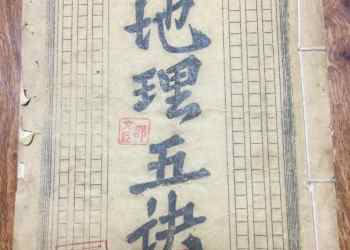 地理五诀